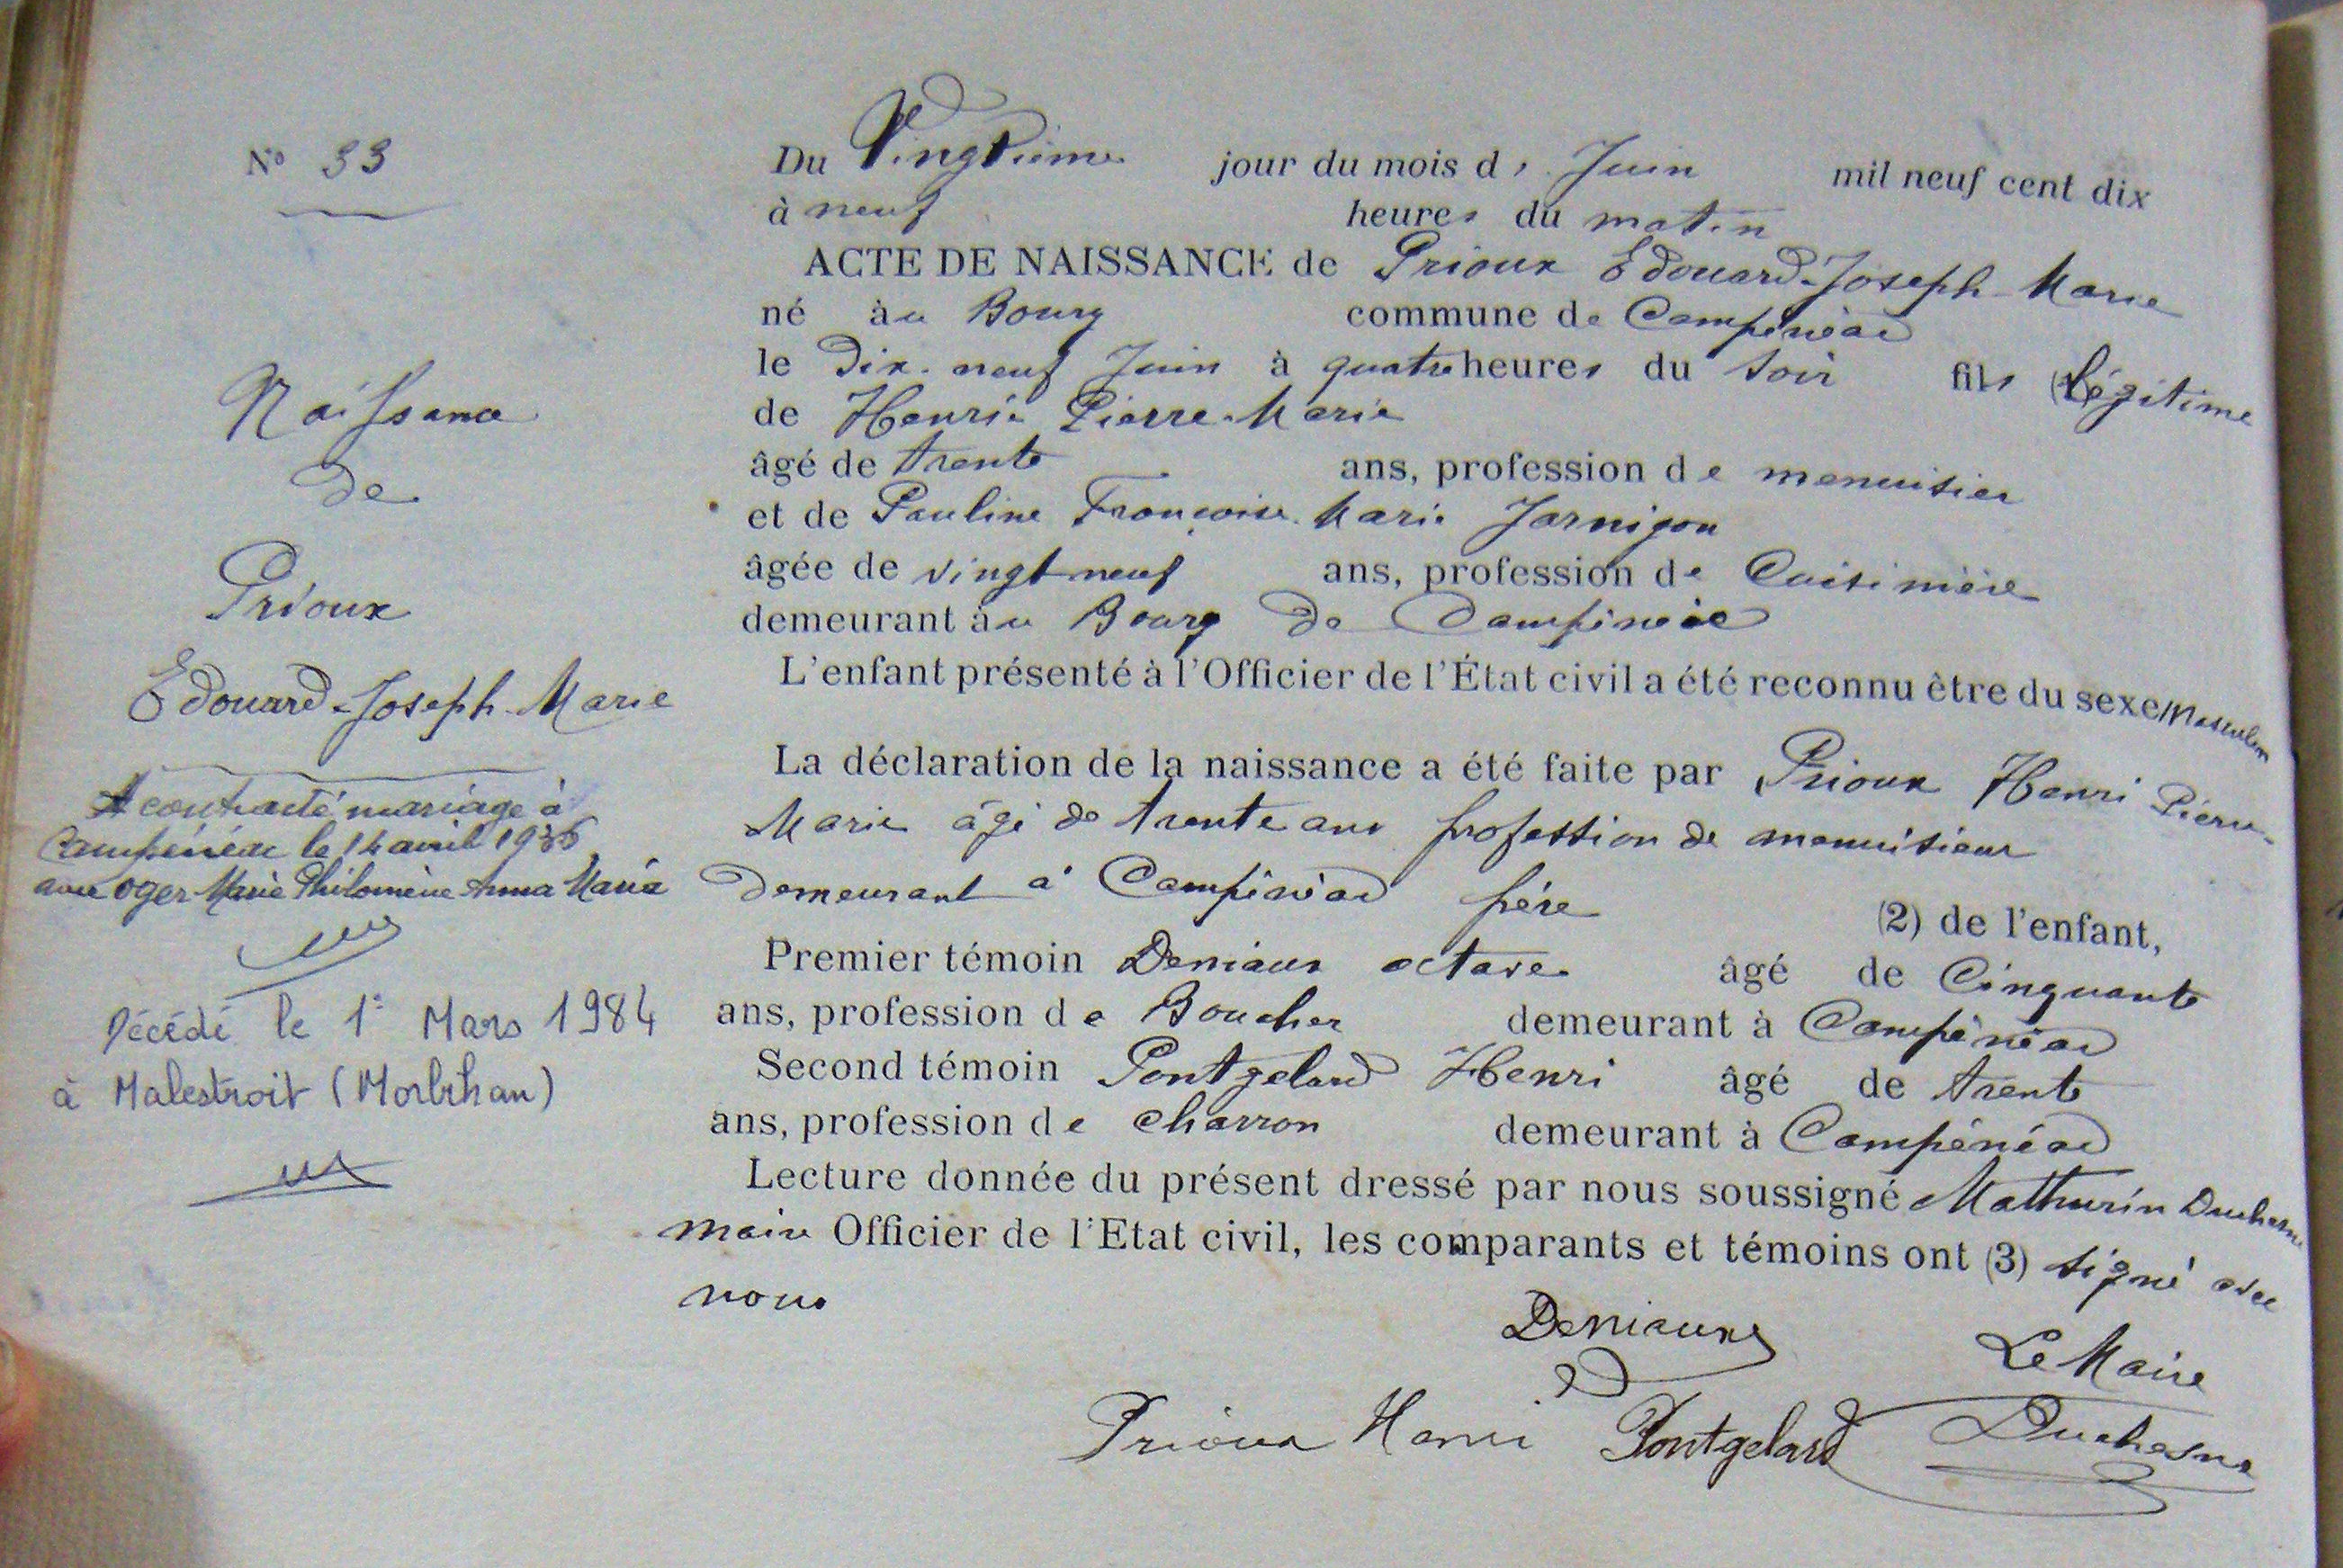 N° 33
Naissance
de
Prioux
Edouard-Joseph-Marie
A contracté mariage à
Campénéac le 14 avril 1936
avec Oger Marie Philomène Anna Maria
Décédé le 1er Mars 1984
à Malestroit (Morbihan)
Du Vingtième jour du mois de Juin mil neuf cent dix
à neuf heures du matin
ACTE DE NAISSANCE de Prioux Edouard-Joseph-Marie
né au Bourg commune de Campénéac
le Dix-neuf Juin à quatre heures du soir fils Légitime
de Henri Pierre-Marie
âgé de trente ans, profession de menuisier
et de Pauline Françoise Marie Jarnigon
âgée de vingt neuf ans, profession de Cuisinière
demeurant au Bourg de Campénéac
L'enfant présenté à l'Officier de l'État civil a été reconnu être du sexe Masculin
La déclaration de la naissance a été faite par Prioux Henri Pierre-
Marie âgé de trente ans profession de menuisier
Demeurant à Campénéac père (2) de l'enfant,
Premier témoin Deniaux octave âgé de Cinquante
ans, profession de Boucher demeurant à Campénéac
Second témoin Pontgelard Henri âgé de trente
ans, profession de charron demeurant à Campénéac
Lecture donnée du présent dressé par nous soussigné Mathurin Duchesne
maire Officier de l'Etat civil, les comparants et témoins ont (3) signé avec
nous
Deniaux
Le Maire
Prioux Henri Pontgelard Duchesne